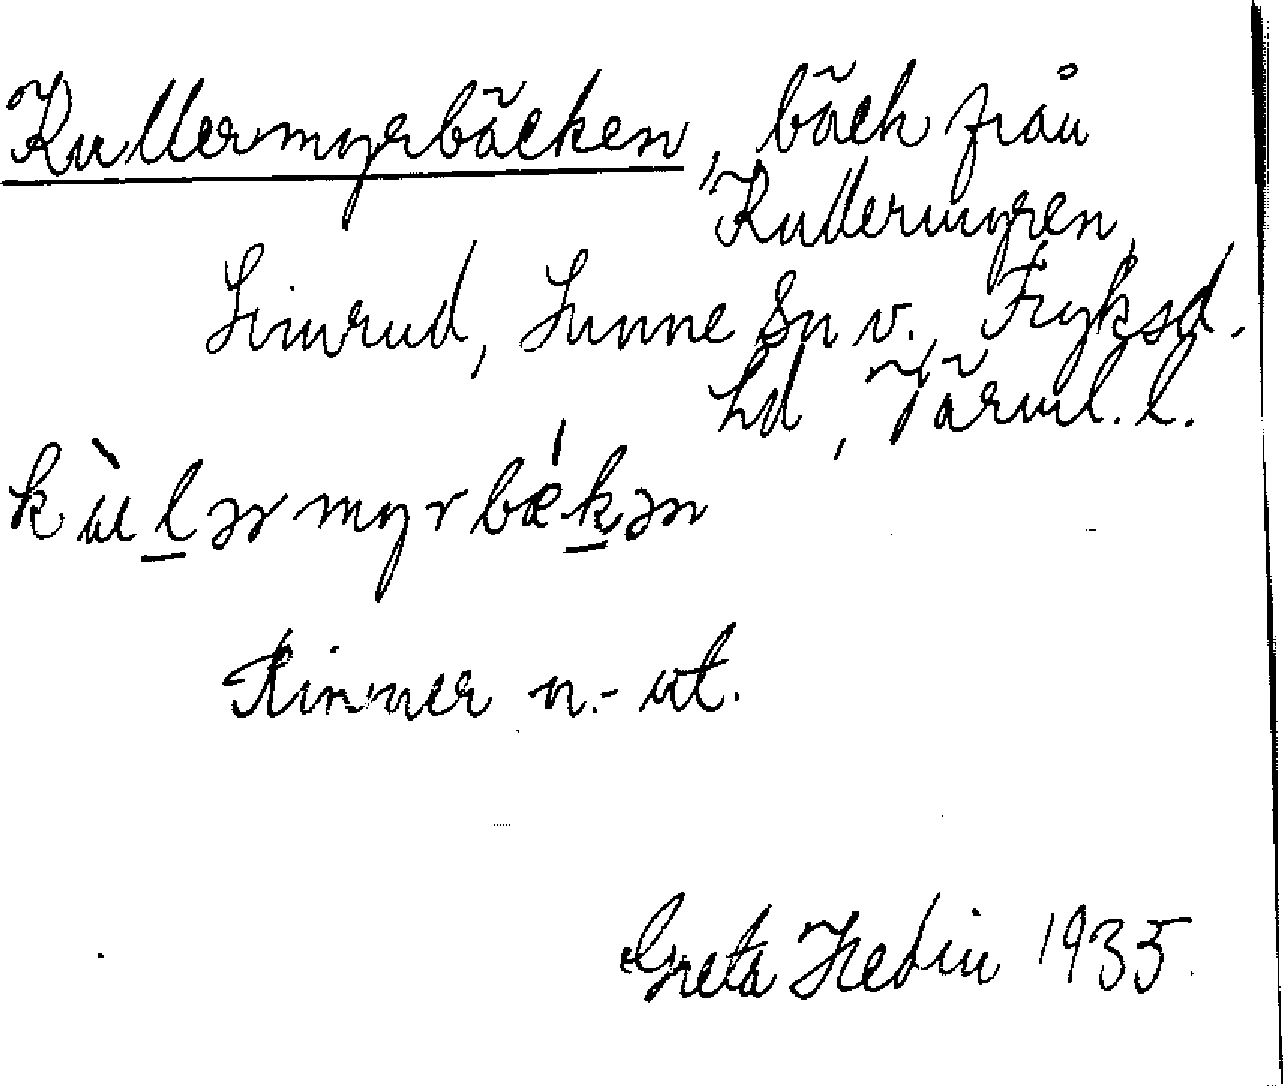 Kullermyrbäcken, bäck från
Kullermyren,
Simrud, Sunne Sn v., Fryksd.
hd, Värml. l.
kùlərmyrbǽkən
Rinner n.- ut.
Greta Hedin 1935.